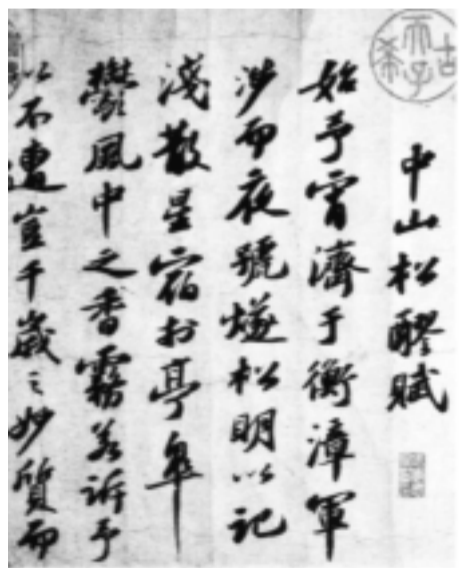 中山松醪賦
始予宵濟于衡漳軍
涉而夜號燧松明以記
淺散星宿於亭皐
鬱風中之香霧若訴予
以不遭豈千歲之妙質而
古希天子